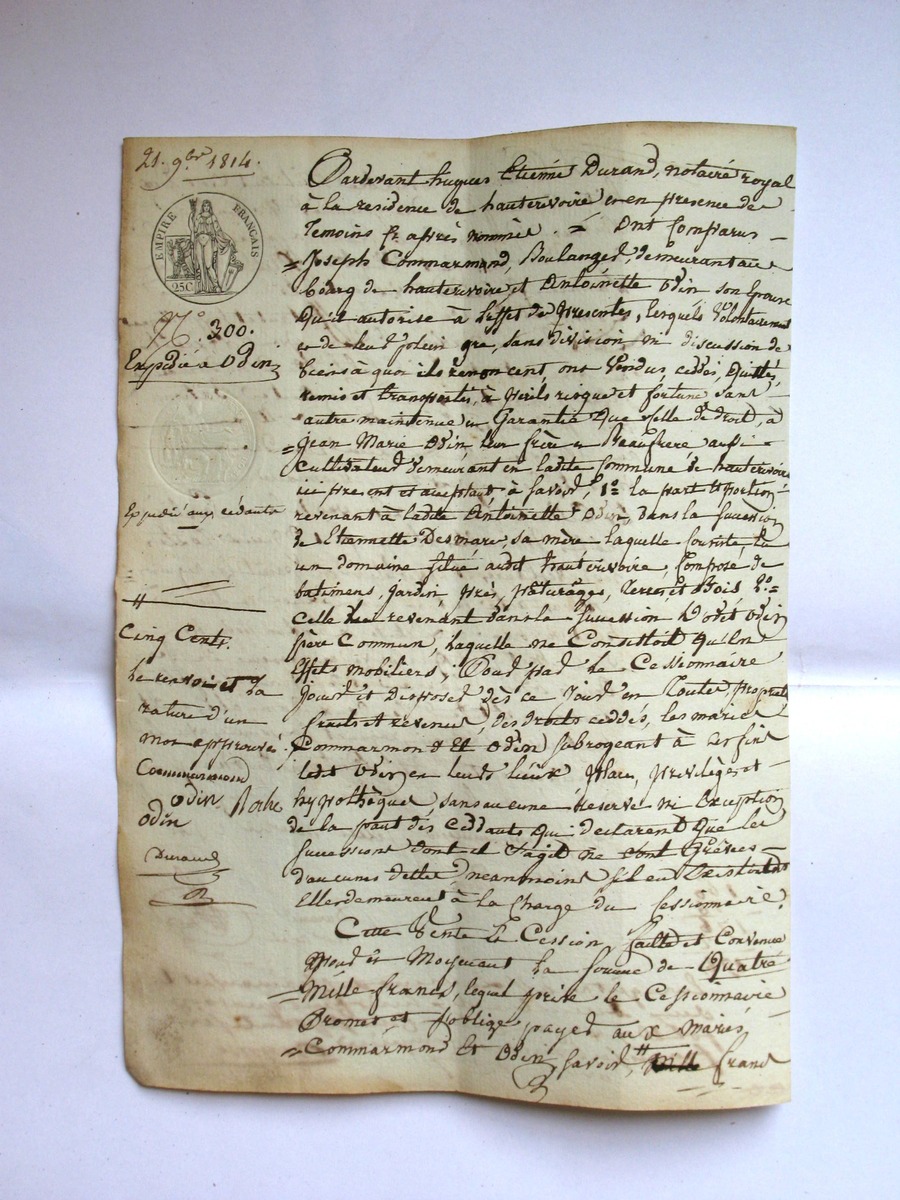 21. 9bre 1814.
EMPIRE FRANÇAIS
25C
N.° 300.
Expedié a Odin
Expedié aux cédants
#
Cinq Cents.
le renvoi et la
rature d'un
mot approuvés.
Commarmond
odin
odin
Durand
Pardevant hugues Etienne Durand, notaire royal
à la residence de hauterivoire et en presence de
Temoins cy après nommés. = Ont Comparus
= Joseph Commarmond, Boulanger, demeurant au
bourg de hauterivoire et Antoinette Odin son Epouse
qu'il autorise à l'effet des presentes, lesquels Volontairement
et de leur plein gré, sans division ni discussion de
biens à quoi ils renoncent, ont Vendus, ceddés, quittés,
remis et transportés, à perils risque et fortune sans
autre maintenue ni Garantie Que celle de droit, à
= jean Marie Odin leur frère et Beaufrere aussi =
Cultivateur demeurant en ladite Commune de hauterivoire
ici present et acceptant à Savoir, 1.° la part et portion
revenant à ladite Antoinette Odin, dans la Succession
de Etiennette Desmare, sa mère laquelle Consiste, En
un domaine situé audit hauterivoire, Composé de
batimens, jardin, près, paturâges, Terres, et Bois 2.°
Celle revenant dans la Succession odin
frère Commun, laquelle ne Consistoit Qu'En
Effets mobiliers, Pour par le Cessionnaire
jouir et disposer dès ce jour en toute propriété
fruits et revenus, des droits ceddés, les mariés
Commarmond Et Odin Subrogeant à ces fins
ledit Odin en leurs lieux place, privilèges et
hypothèques, sans aucune reserve ni Exception
de la part des Ceddants qui declarent Que les
Successions dont il s'agit ne sont Grévées
d'aucunes dettes, neanmoins s'il en Existoit
Elles demeurent à la Charge du Cessionnaire.
Cette Vente Et Cession, faitte et Convenue
Pour et Moyennant la somme de Quatre
= Mille francs, lequel prix le Cessionnaire
Promet et s'oblige payer aux mariés
= Commarmond Et Odin, Savoir, # Mille francs